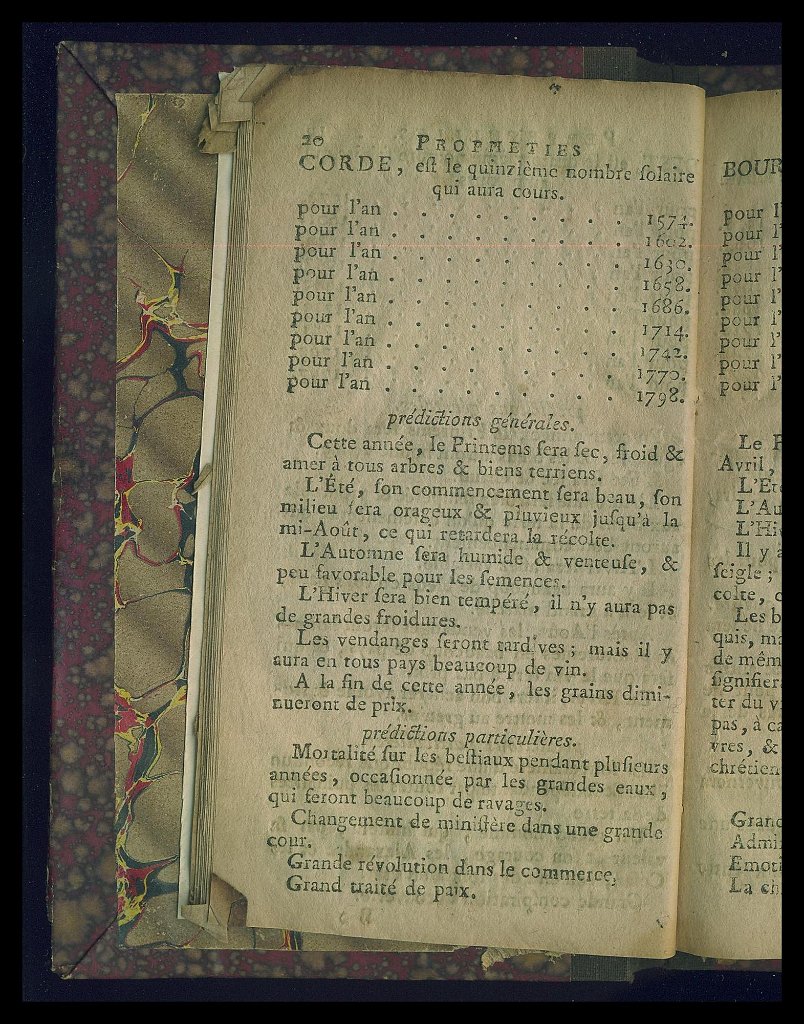 20 PROPHETIES
CORDE, eſt le quinzième nombre ſolaire
qui aura cours.
pour l'an . . . . . . . . . 1574.
pour l'an . . . . . . . . . 1602.
pour l'an . . . . . . . . . 1630.
pour l'an . . . . . . . . . 1658.
pour l'an . . . . . . . . . 1686.
pour l'an . . . . . . . . . 1714.
pour l'an . . . . . . . . . 1742.
pour l'an . . . . . . . . . 1770.
pour l'an . . . . . . . . . 1798.
prédictions générales.
Cette année, le Printems ſera ſec, froid &
amer à tous arbres & biens terriens.
L'Été, ſon commencement ſera beau, ſon
milieu ſera orageux & pluvieux juſqu'à la
mi-Août, ce qui retardera la récolte.
L'Automne ſera humide & venteuſe, &
peu favorable pour les ſemences.
L'Hiver ſera bien tempéré, il n'y aura pas
de grandes froidures.
Les vendanges ſeront tardives; mais il y
aura en tous pays beaucoup de vin.
A la fin de cette année, les grains dimi-
nueront de prix.
prédictions particulières.
Mortalité ſur les beſtiaux pendant pluſieurs
années, occaſionnée par les grandes eaux,
qui feront beaucoup de ravages.
Changement de miniſtère dans une grande
cour.
Grande révolution dans le commerce,
Grand traité de paix.
BOUR
pour l'
pour l'
pour l'
pour l'
pour l'
pour l'
pour l'
pour l'
pour l'
Le P
Avril,
L'Et
L'Au
L'Hi
Il y a
ſeigle;
colte,
Les b
quis, ma
de mêm
ſignifier
ter du v
pas, à ca
vres, &
chrétien
Grand
Admi
Emoti
La ch